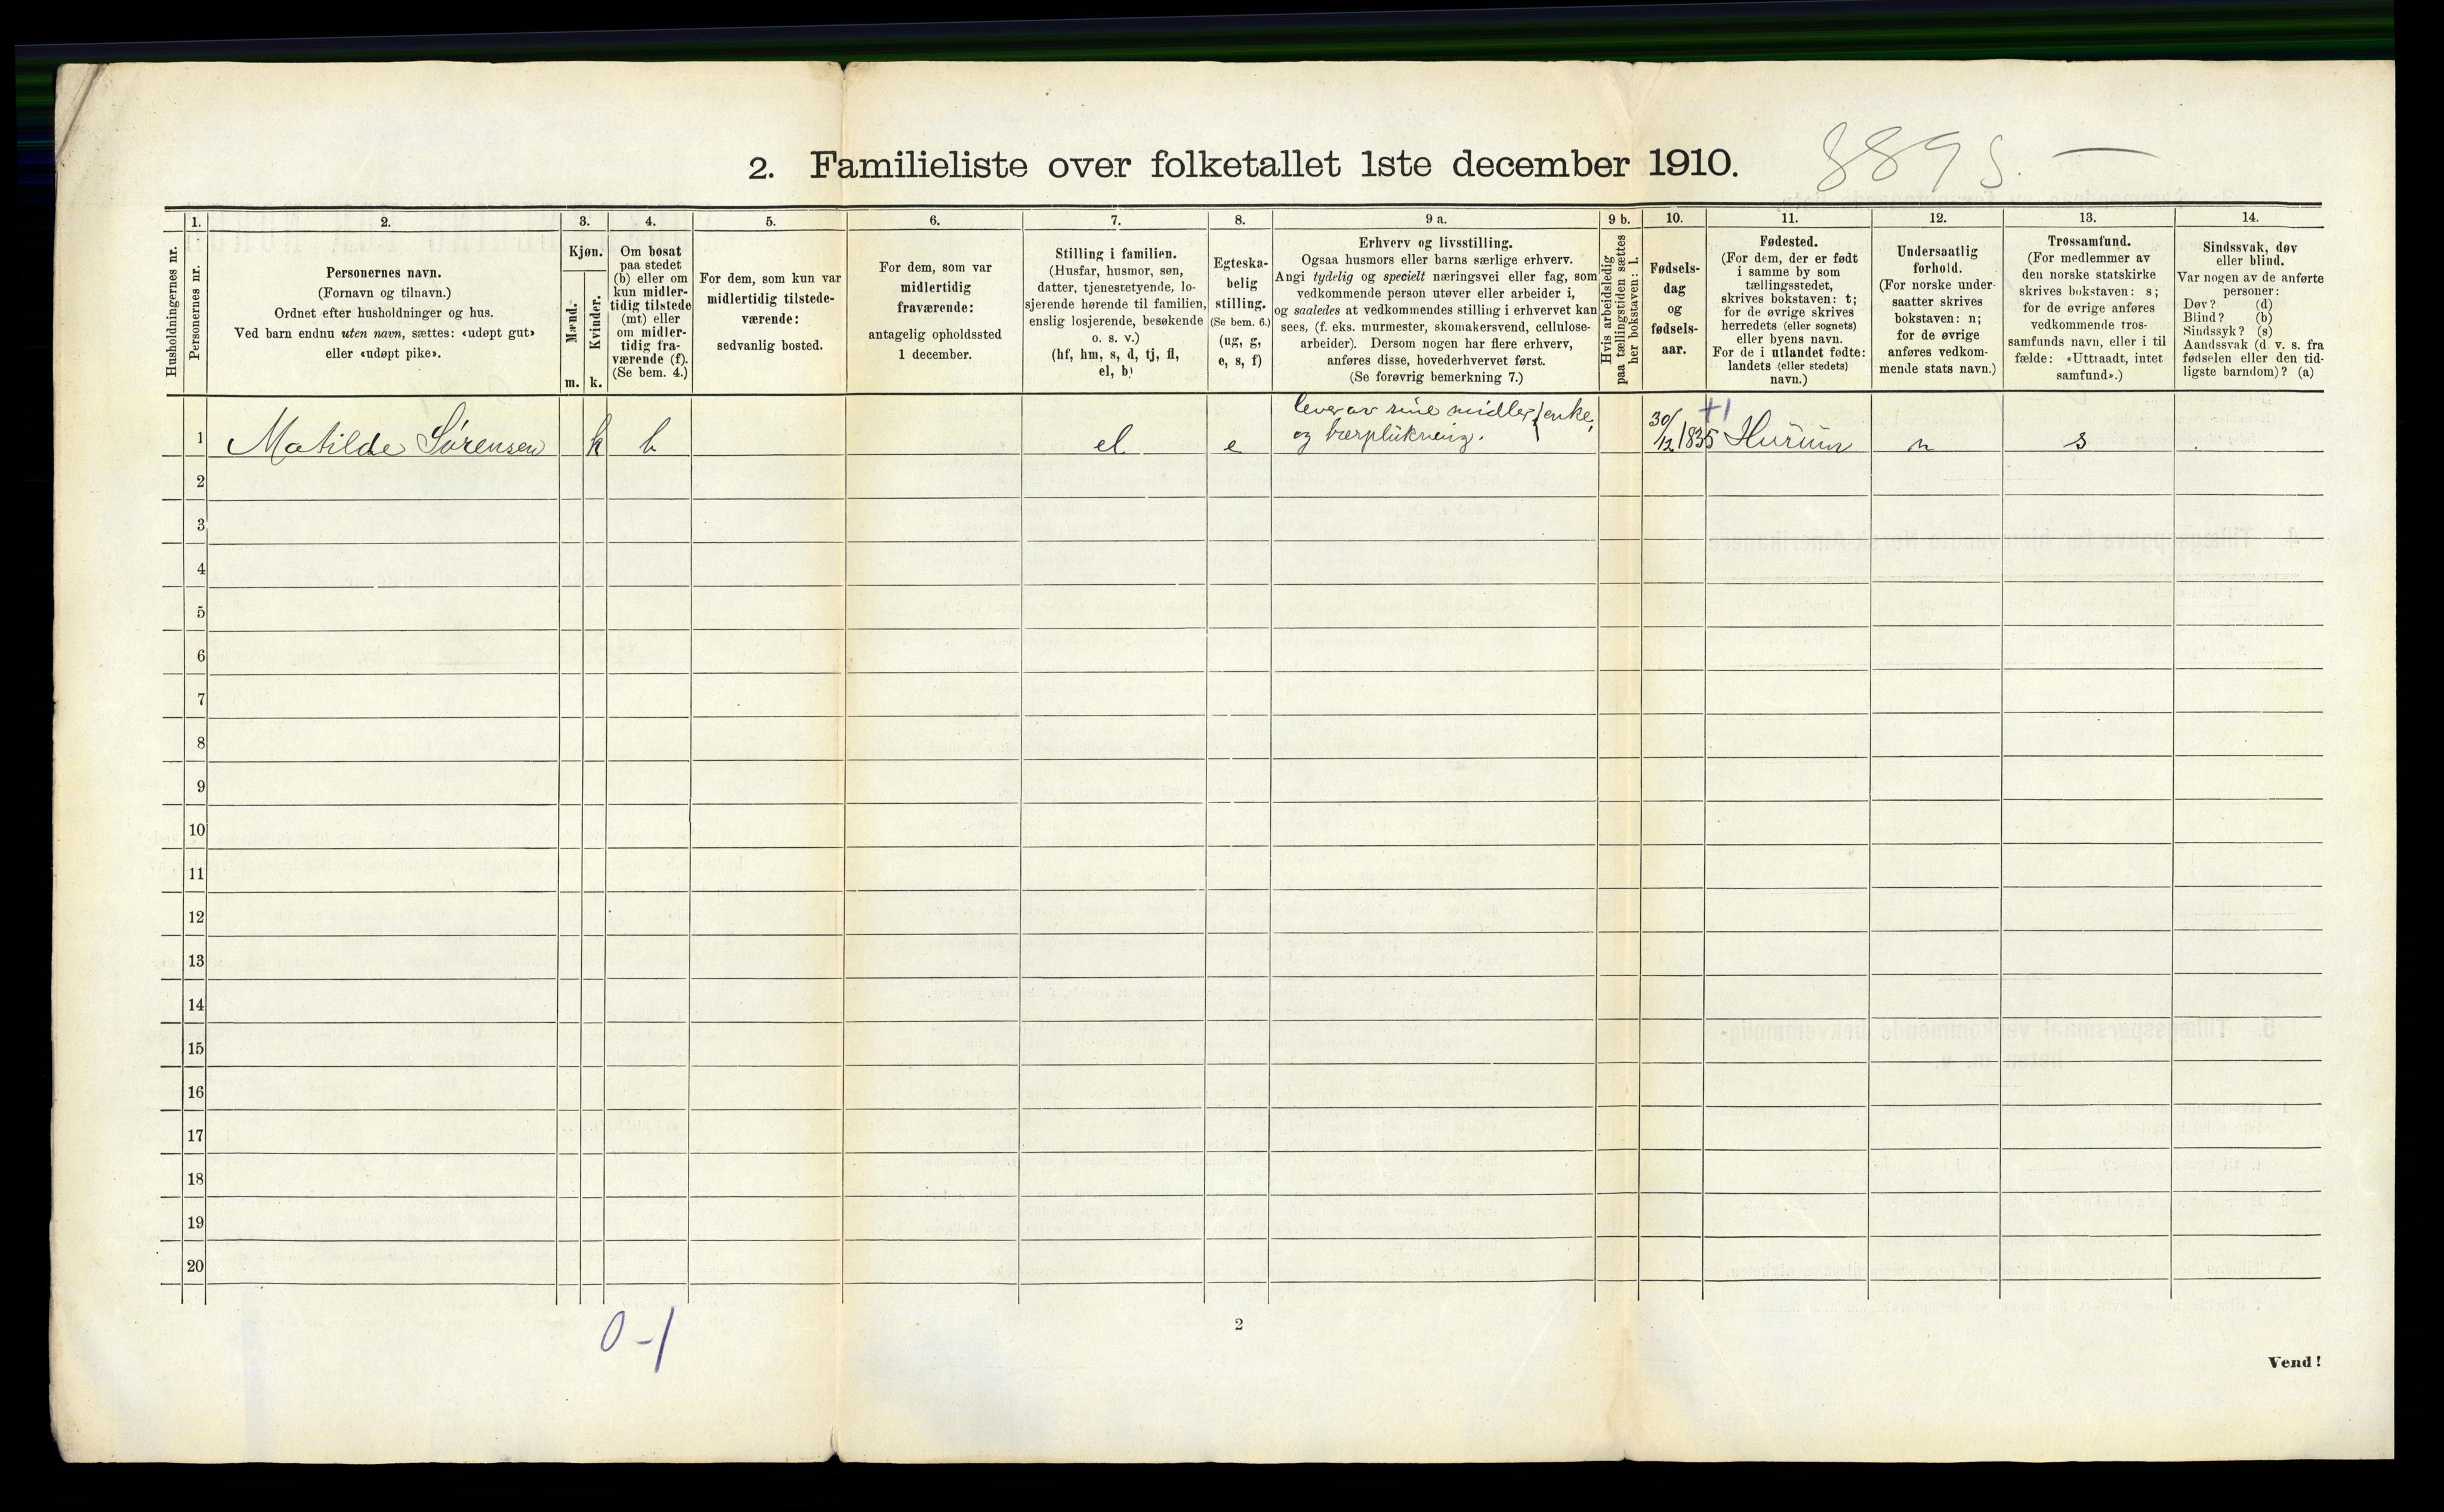 2. Familieliste over folketallet 1ste december 1910.
8895. —
Husholdningernes nr.
1.
Personernes nr.
2.
Personernes navn.
(Fornavn og tilnavn.)
Ordnet efter husholdninger og hus.
Ved barn endnu uten navn, sættes: «udøpt gut»
eller «udøpt pike».
3.
Kjøn.
Mænd.
Kvinder.
m. k.
4.
Om bosat
paa stedet
(b) eller om
kun midler-
tidig tilstede
(mt) eller
om midler-
tidig fra-
værende (f).
(Se bem. 4.)
5.
For dem, som kun var
midlertidig tilstede-
værende:
sedvanlig bosted.
6.
For dem, som var
midlertidig
fraværende:
antagelig opholdssted
1 december.
7.
Stilling i familien.
(Husfar, husmor, søn,
datter, tjenestetyende, lo-
sjerende hørende til familien,
enslig losjerende, besøkende
o. s. v.)
(hf, hm, s, d, tj, fl,
el, b)
8.
Egteska-
belig
stilling.
(Se bem. 6.)
(ug, g,
e, s, f)
9 a.
Erhverv og livsstilling.
Ogsaa husmors eller barns særlige erhverv.
Angi tydelig og specielt næringsvei eller fag, som
vedkommende person utøver eller arbeider i,
og saaledes at vedkommendes stilling i erhvervet kan
sees, (f. eks. murmester, skomakersvend, cellulose-
arbeider). Dersom nogen har flere erhverv,
anføres disse, hovederhvervet først.
(Se forøvrig bemerkning 7.)
9 b.
Hvis arbeidsledig
paa tællingstiden sættes
her bokstaven: l.
10.
Fødsels-
dag
og
fødsels-
aar.
11.
Fødested.
(For dem, der er født
i samme by som
tællingsstedet,
skrives bokstaven: t;
for de øvrige skrives
herredets (eller sognets)
eller byens navn.
For de i utlandet fødte:
landets (eller stedets)
navn.)
12.
Undersaatlig
forhold.
(For norske under-
saatter skrives
bokstaven: n;
for de øvrige
anføres vedkom-
mende stats navn.)
13.
Trossamfund.
(For medlemmer av
den norske statskirke
skrives bokstaven: s;
for de øvrige anføres
vedkommende tros-
samfunds navn, eller i til
fælde: «Uttraadt, intet
samfund».)
14.
Sindssvak, døv
eller blind.
Var nogen av de anførte
personer:
Døv? (d)
Blind? (b)
Sindssyk? (s)
Aandssvak (d. v. s. fra
fødselen eller den tid-
ligste barndom)? (a)
1 Matilde Sørensen k b el e lever av sine midler og bærplukning. } enke, 30/12 1835 +1 Hurum n s
2
3
4
5
6
7
8
9
10
11
12
13
14
15
16
17
18
19
20
0-1
2
Vend!